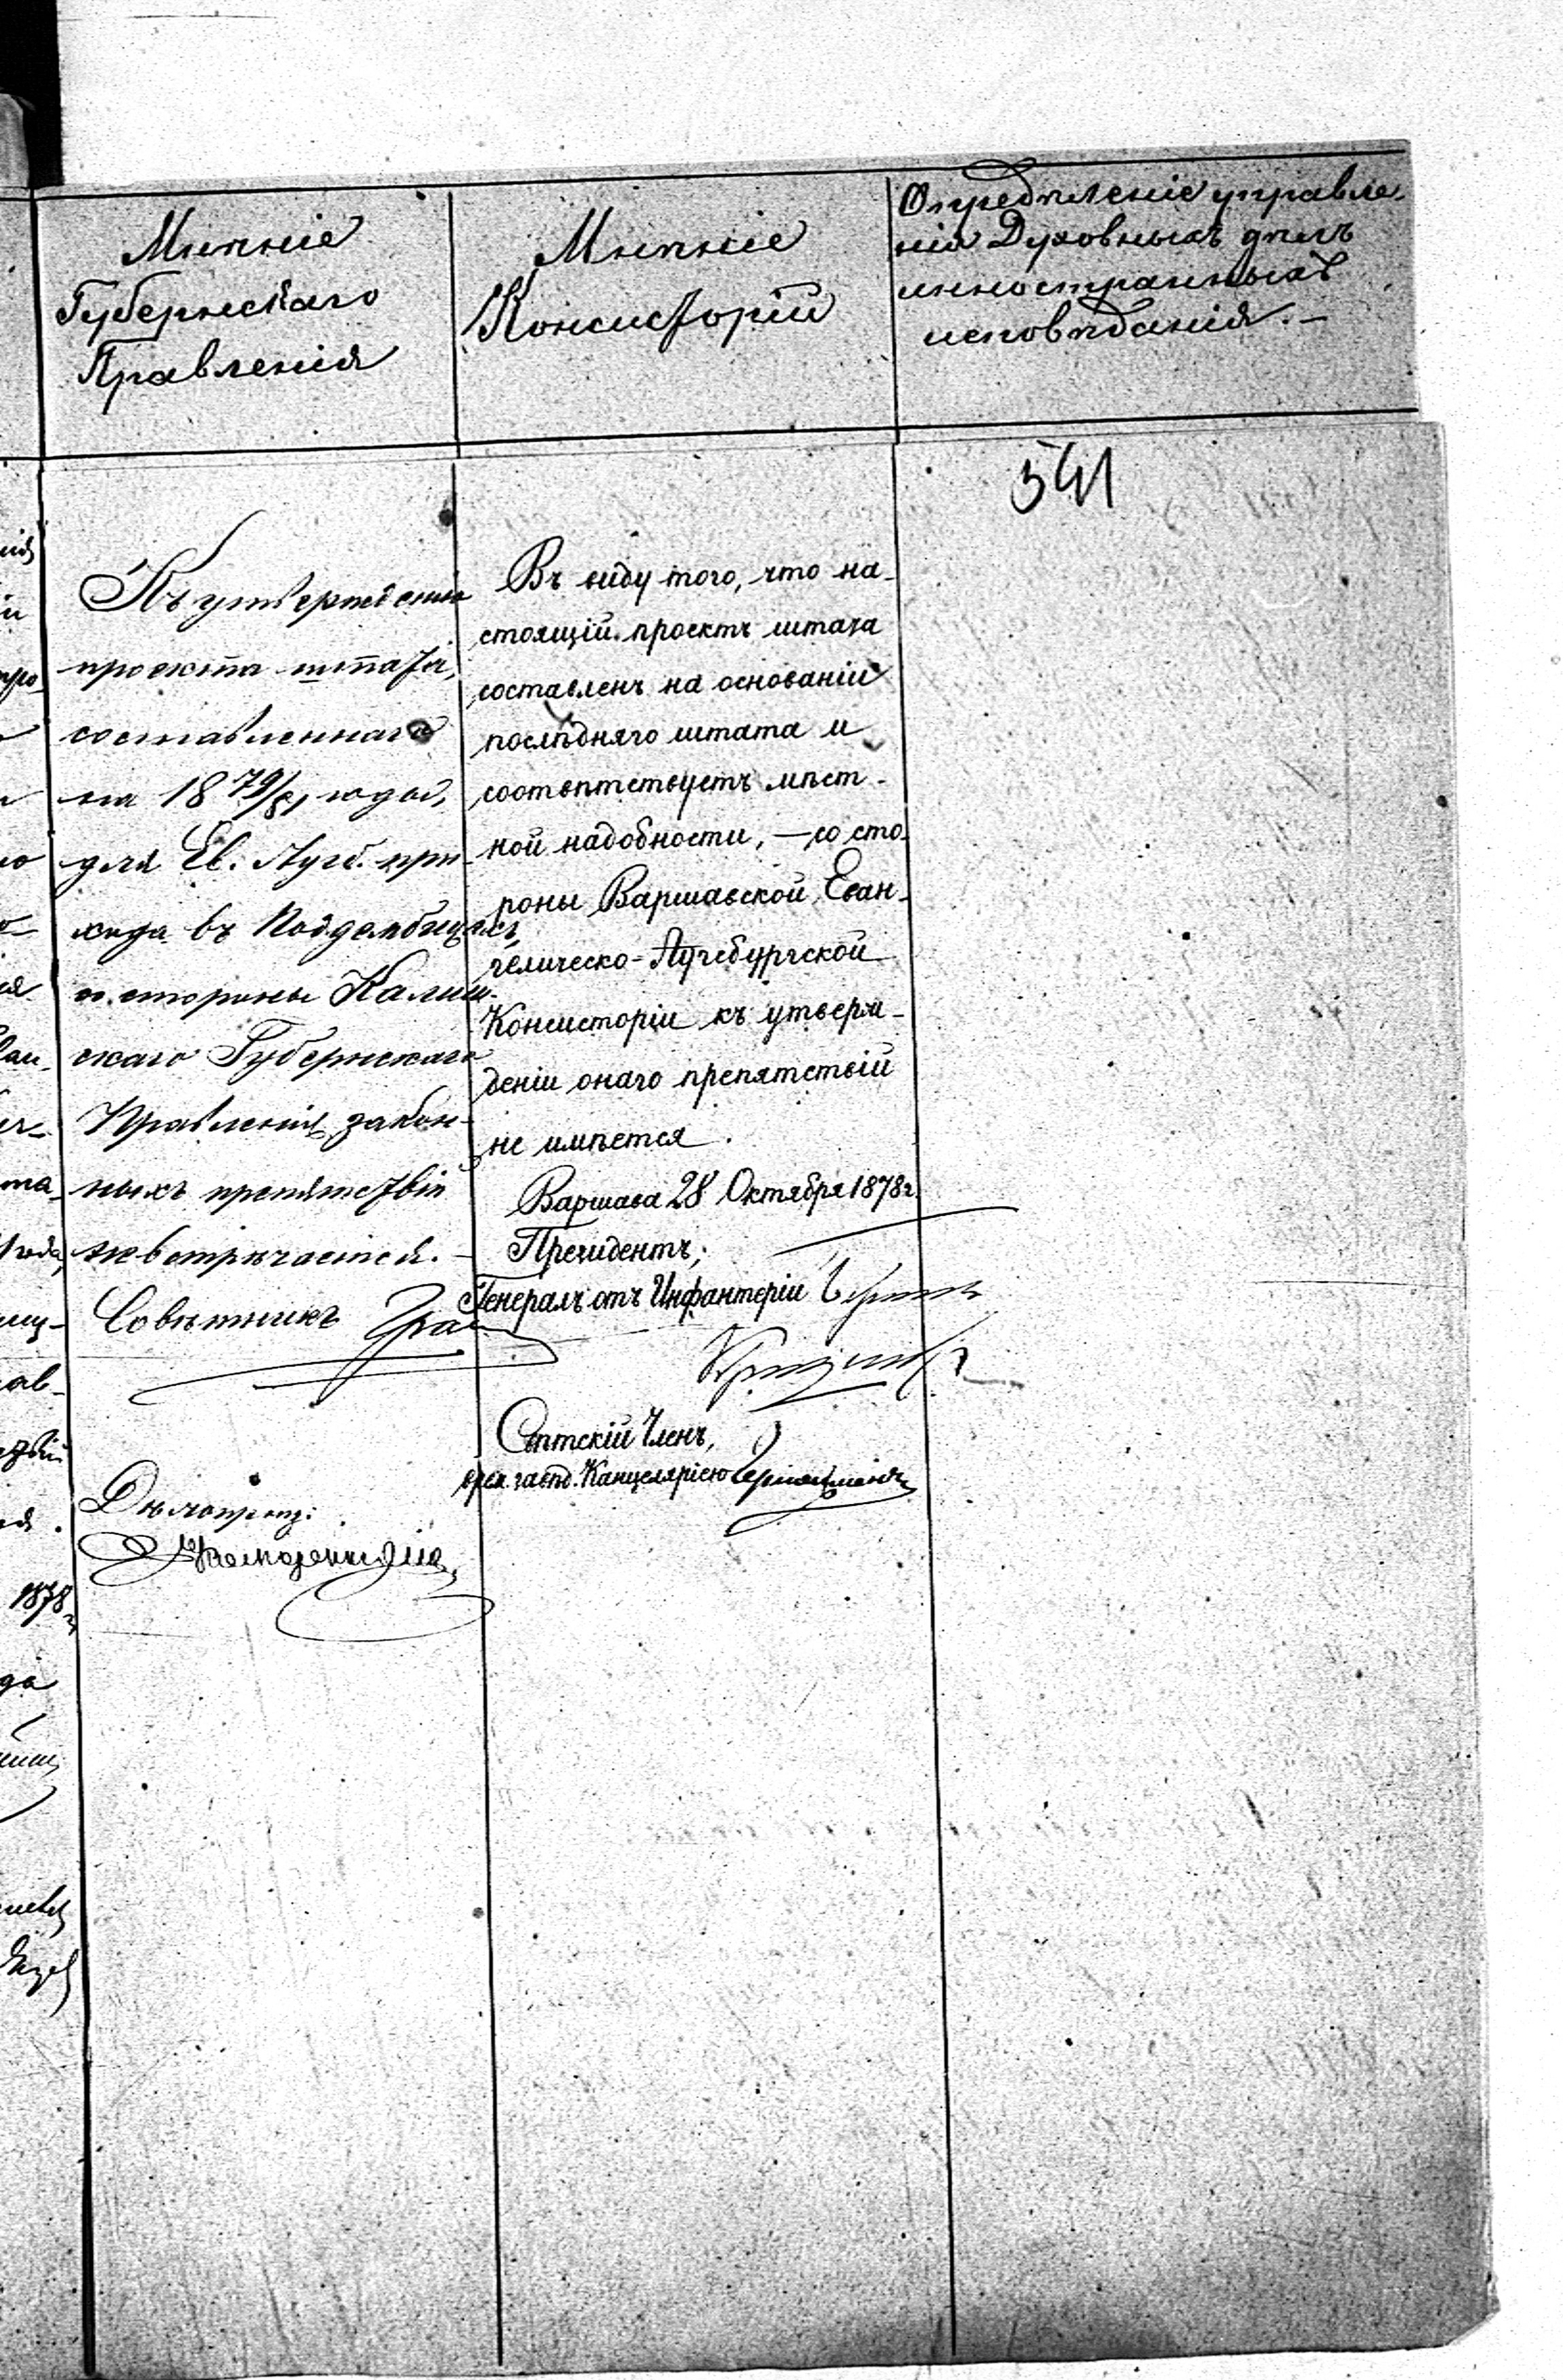 Мнѣніе
Губернскаго
Правленія
Мнѣніе
Консисторіи
Опредѣленіе управле-
нія Духовныхъ дѣлъ
иностранныхъ
исповѣданій.-
541
Къ утвержденію
проекта штата,
составленнаго
на 18 79/81 годы,
для Ев. Аугсб. при-
хода въ Поддембицахъ,
со стороны Калиш-
скаго Губернскаго
Правленія закон-
ныхъ препятствій
не встрѣчается.-
Совѣтникъ
Дѣлопроиз:
Въ виду того, что на-
стоящій проектъ штата
составленъ на основаніи
послѣдняго штата и
соотвѣтствуетъ мѣст-
ной надобности, — со сто-
роны Варшавской Еван-
гелическо-Аугсбургской
Консисторіи къ утверж-
деніи онаго препятствій
не имѣется.
Варшава 28 Октября 1878 г.
Президентъ,
Генералъ отъ Инфантеріи
Свѣтскій Членъ,
Канцеляріею
про-
та-
ав-
1878 г.
да